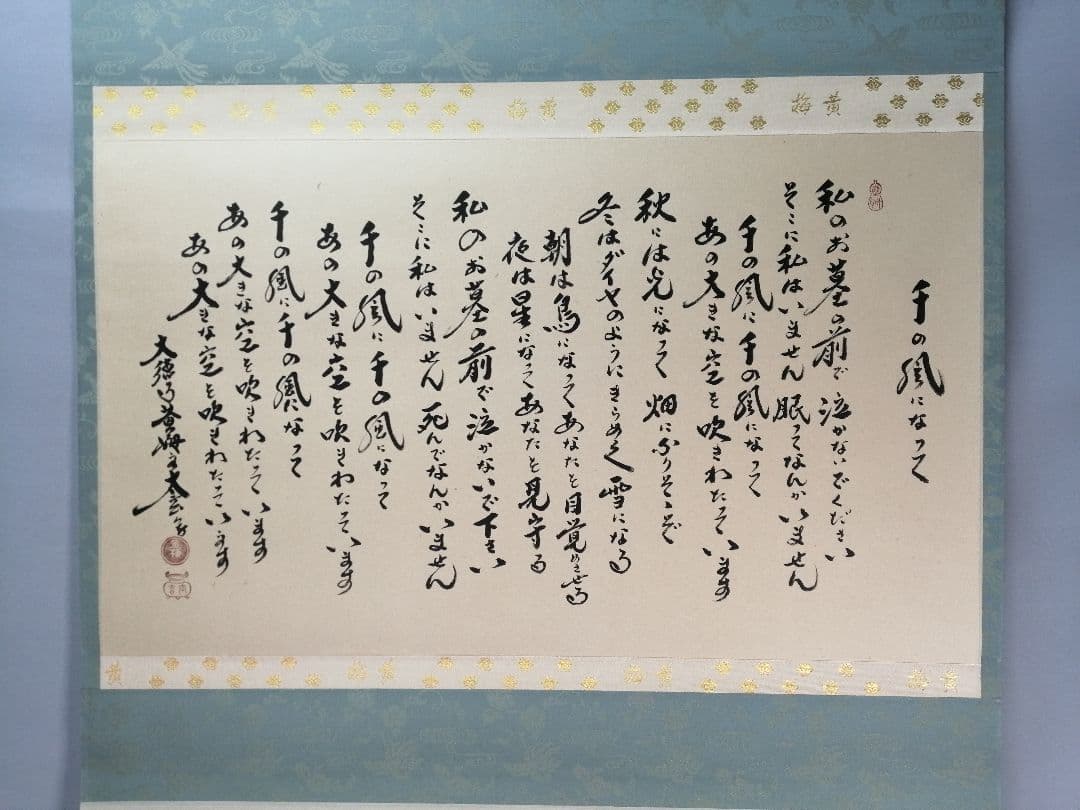 黄梅
黄梅
黄梅
千の風になって
私のお墓の前で泣かないでください
そこに私はいません 眠ってなんかいません
千の風に 千の風になって
あの大きな空を吹きわたっています
秋には光になって 畑にふりそゝぐ
冬はダイヤのようにきらめく 雪になる
朝は鳥になってあなたを目覚めさせる
夜は星になってあなたを見守る
私のお墓の前で泣かないで下さい
そこに私はいません 死んでなんかいません
千の風に 千の風になって
あの大きな空を吹きわたっています
千の風に千の風になって
あの大きな空を吹きわたっています
あの大きな空を吹きわたっています
大徳寺黄梅主大玄
黄梅
黄梅
黄梅
黄